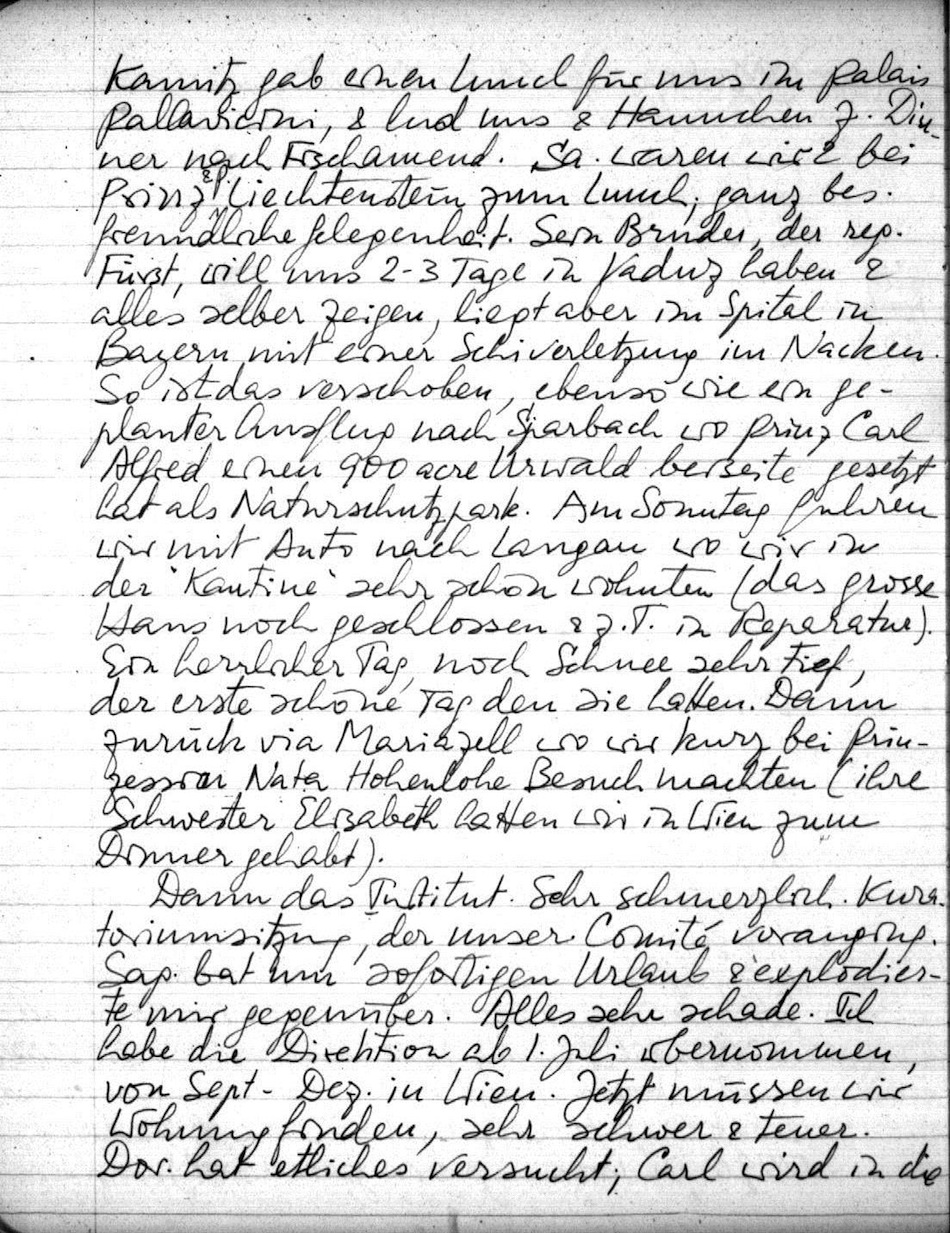 Kamitz gab einen Lunch für uns im Palais
Pallavicini, & lud uns & Hannchen z. Din-
ner nach Fischamend. Sa. waren wir 2 bei
Prinz & P. Liechtenstein zum Lunch, ganz bes.
freundliche Gelegenheit. Sein Bruder, der reg.
Fürst, will uns 2-3 Tage in Vaduz haben &
alles selber zeigen, liegt aber im Spital in
Bayern mit einer Schiverletzung im Nacken.
So ist das verschoben, ebenso wie ein ge-
planter Ausflug nach Sparbach wo Prinz Carl
Alfred einen 900 acre Urwald beiseite gesetzt
hat als Naturschutzpark. Am Sonntag fuhren
wir mit Auto nach Langau wo wir in
der 'Kantine' sehr schön wohnten (das grosse
Haus noch geschlossen & z.T. in Reparatur).
Ein herrlicher Tag, noch Schnee sehr tief,
der erste schöne Tag den sie hatten. Dann
zurück via Mariazell wo wir kurz bei Prin-
zessin Nata Hohenlohe Besuch machten (ihre
Schwester Elisabeth hatten wir in Wien zum
Dinner gehabt).
Dann das Institut. Sehr schmerzlich. Kura-
toriumsitzung, der unser Comité voranging.
Sag. bat um sofortigen Urlaub & explodier-
te mir gegenüber. Alles sehr schade. Ich
habe die Direktion ab 1. Juli übernommen,
von Sept - Dez. in Wien. Jetzt müssen wir
Wohnung finden, sehr schwer & teuer.
Dor. hat etliches versucht; Carl wird in die